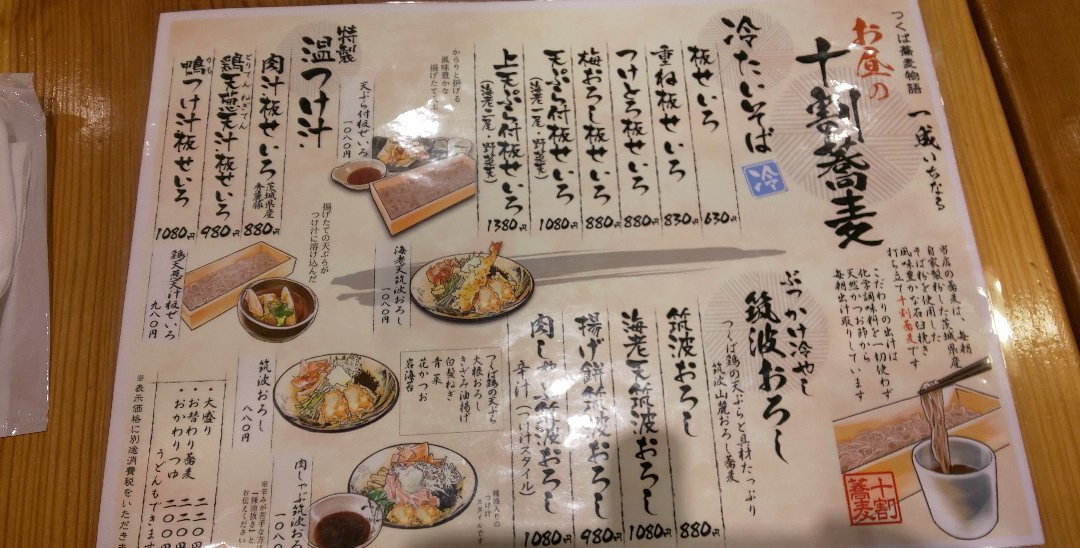 つくば蕎麦物語
一成いちなる
お昼の
十割蕎麦
当店の蕎麦は、毎朝
自家製粉した茨城県産
そば粉を使用した
風味豊かな石臼挽き
打ち立て十割蕎麦です
こだわりの出汁は
化学調味料を一切使わず
天然かつお節から
毎朝出け取りしています
十割蕎麦
冷たいそば
冷
板せいろ 630円
重ね板せいろ 830円
つけとろ板せいろ 880円
梅おろし板せいろ 880円
天ぷら付板せいろ 1080円
(海老一尾・野菜)
上天ぷら付板せいろ 1380円
(海老二尾・野菜)
からりと揚げる
風味豊かな
揚げたて
天ぷら付板せいろ
一〇八〇円
特製
温つけ汁
肉汁板せいろ 880円
茨城県産
鶏天葱天汁板せいろ 980円
とりてんねぎてん
鴨つけ汁板せいろ 1080円
かも
揚げたての天ぷらが
つけ汁に溶け込んだ
鶏天葱天汁板せいろ
九八〇円
ぶっかけ冷やし
筑波おろし
つくば鶏の天ぷらと具材たっぷり
筑波山麓おろし蕎麦
筑波おろし 880円
海老天筑波おろし 1080円
揚げ餅筑波おろし 980円
肉しゃぶ筑波おろし 1080円
辛汁(つけスタイル)
海老天筑波おろし
一〇八〇円
つくば鶏の天ぷら
大根おろし
きざみ油揚げ
白髪ねぎ
青菜
花かつお
岩海苔
筑波おろし
八八〇円
辣油入りの
つけ汁
スタイルです
肉しゃぶ筑波おろ
一〇八〇
※辛みが苦手な方は
「辣油抜き」と
お伝えください
・大盛り 二二〇
・お替わり蕎麦 二二〇
・おかわりつゆ 二〇〇
うどんもできます
※表示価格に別途消費税をいただきま